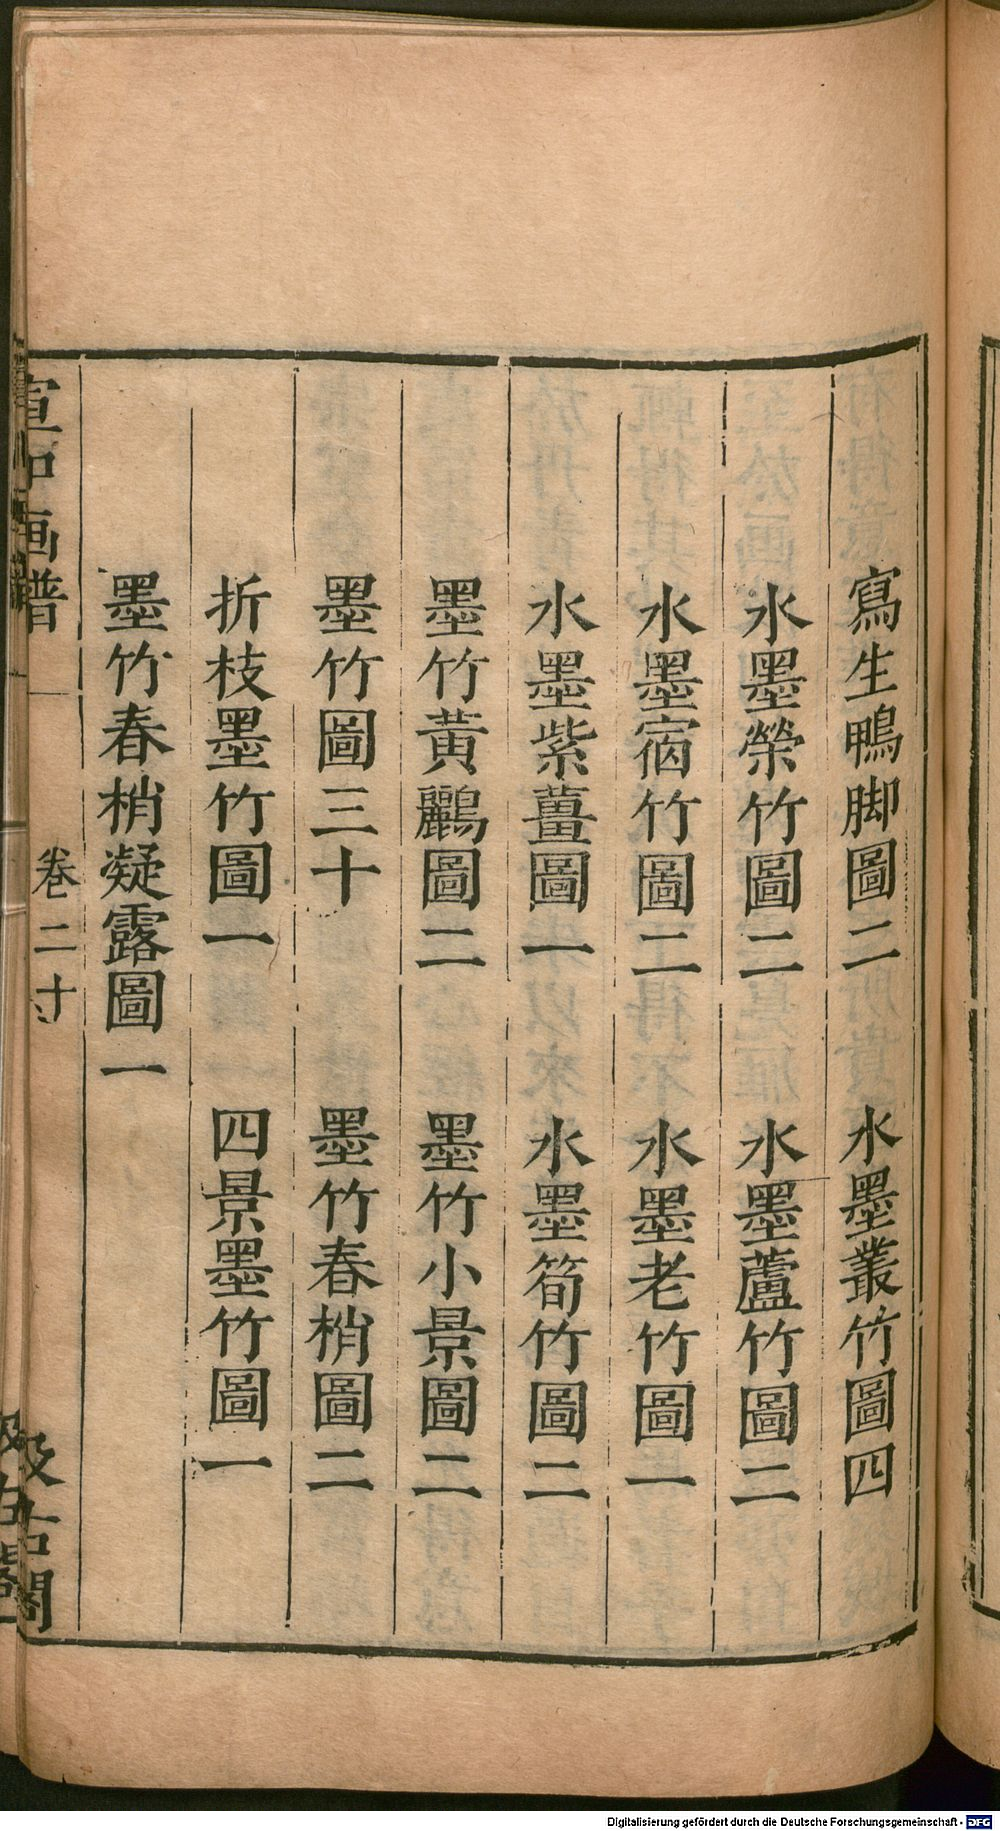 寫生鴨脚圖二　水墨叢竹圖四
水墨榮竹圖二　水墨蘆竹圖二
水墨宿竹圖二　水墨老竹圖一
水墨紫薑圖一　水墨筍竹圖二
墨竹黃鸝圖二　墨竹小景圖二
墨竹圖三十　墨竹春梢圖二
折枝墨竹圖一　四景墨竹圖一
墨竹春梢凝露圖一
宣和画譜　卷二十　汲古閣
Digitalisierung gefördert durch die Deutsche Forschungsgemeinschaft - DFG